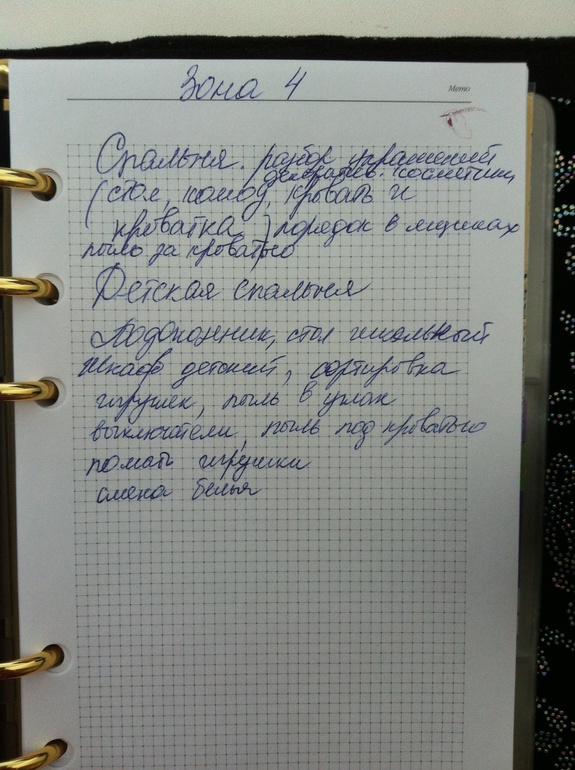 Зона 4
Memo
Спальня. разбор украшений
декоратив. косметики
(стол, комод, кровать и
кроватка) порядок в ящиках
пыль за кроватью
Детская спальня
Подоконник, стол школьный
Шкаф детский, сортировка
игрушек, пыль в углах
выключатели, пыль под кроватью
игрушки
смена белья